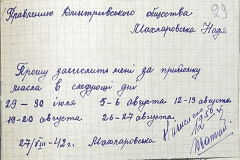 29
Правлению Дмитровського общества
Махларовська Надя
Прошу засчислить мені за приьомку
масла в следующи дні
29 – 30 июля 5-6 августа 12-13 августа
19-20 августа 26-27 августа
27/VIII-42г. Махларовська